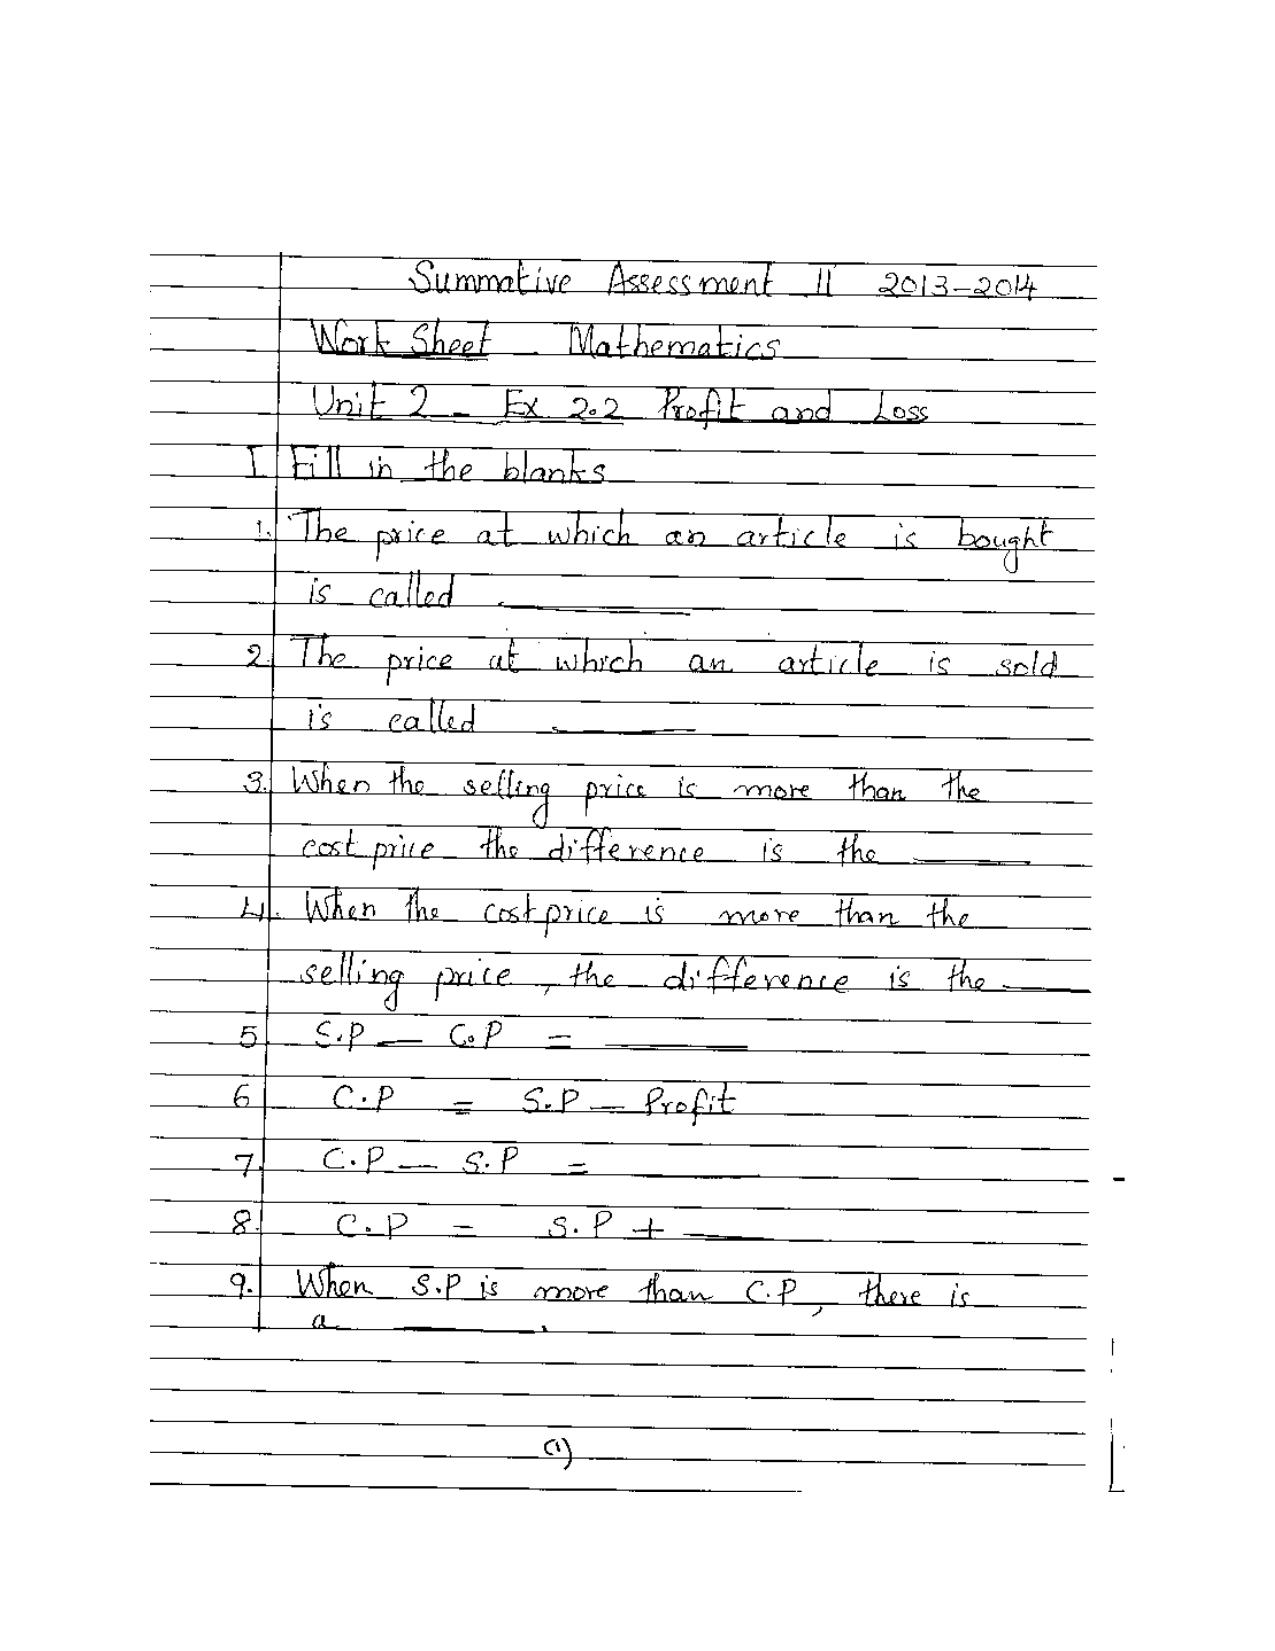 Summative Assessment II 2013-2014
Work Sheet - Mathematics
Unit 2 - Ex 2.2 Profit and Loss
I Fill in the blanks
1. The price at which an article is bought
is called ________
2. The price at which an article is sold
is called ________
3. When the selling price is more than the
cost price the difference is the ________
4. When the cost price is more than the
selling price, the difference is the ________
5 S.P - C.P = ________
6 C.P = S.P - Profit
7. C.P - S.P = ________
8. C.P = S.P + ________
9. When S.P is more than C.P, there is
a ________.
(1)